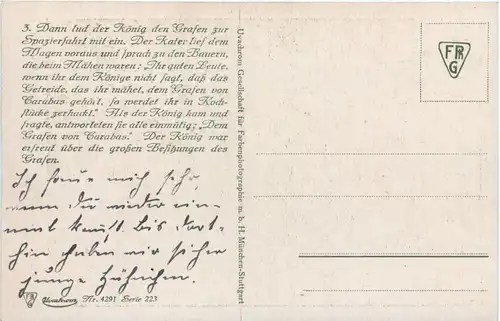 3. Dann lud der König den Grafen zur
Spazierfahrt mit ein. Der Kater lief dem
Wagen voraus und sprach zu den Bauern,
die beim Mähen waren: „Ihr guten Leute,
wenn ihr dem Könige nicht sagt, daß das
Getreide, das ihr mähet, dem Grafen von
Carabas gehört, so werdet ihr in Koch-
stücke zerhackt.“ Als der König kam und
fragte, antworteten sie alle einmütig: „Dem
Grafen von Carabas.“ Der König war
erfreut über die großen Besitzungen des
Grafen.
Ich freue mich sehr,
wenn du wieder ein-
mal kommst. Bis dort-
hin haben wir sicher
junge Hühnchen.
FR
G
Uvachrom Nr. 4291 Serie 223
Uvachrom Gesellschaft für Farbenphotographie m. b. H. München-Stuttgart
FR
G